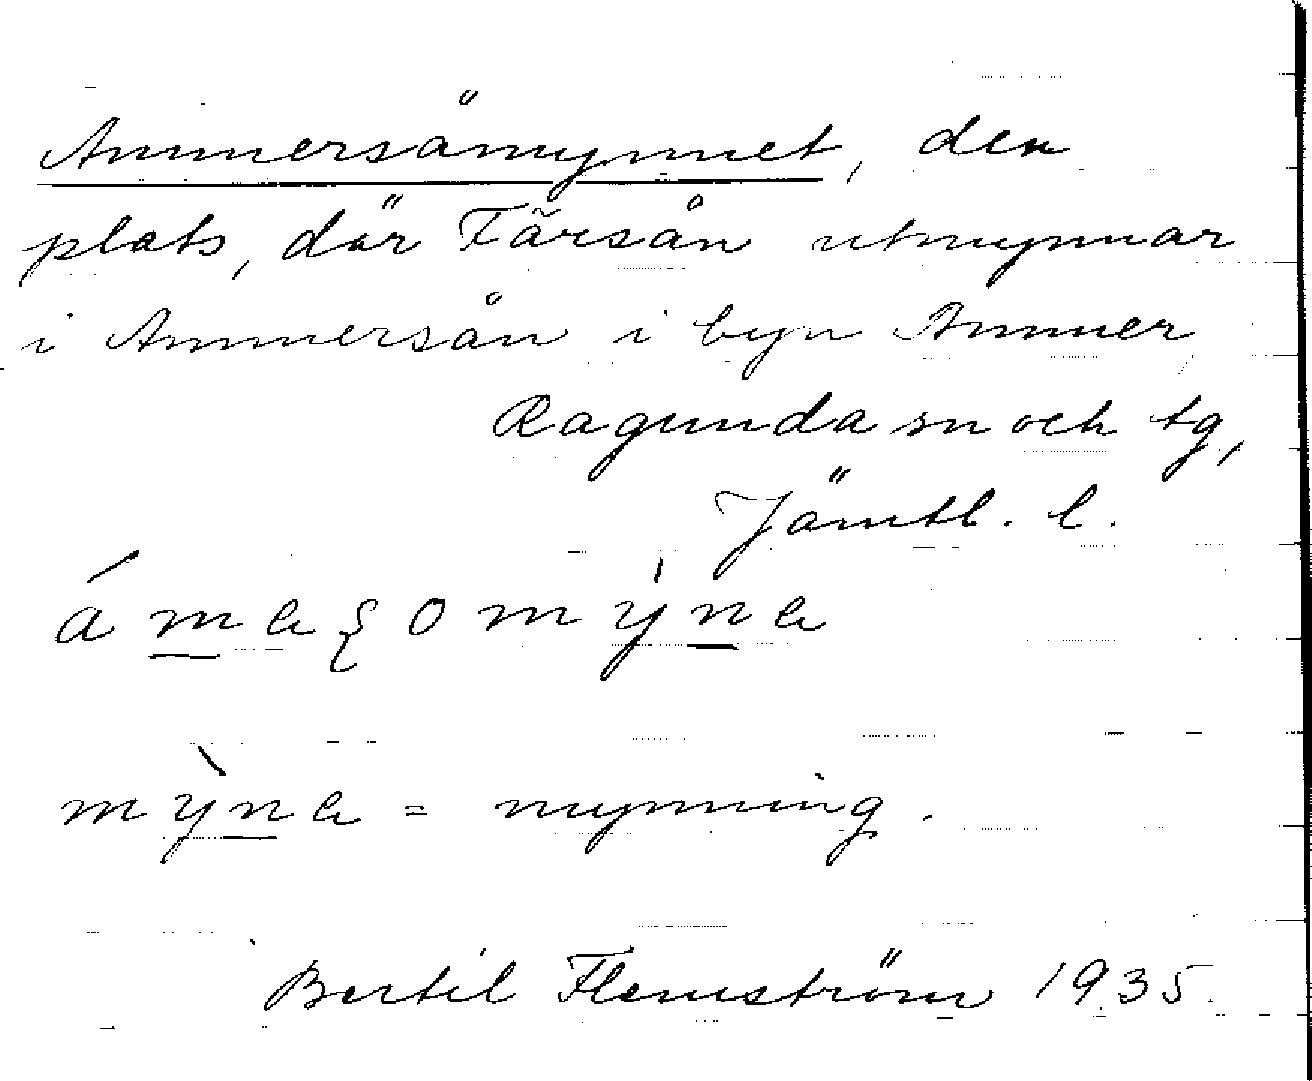 Ammersåmynnet, den
plats, där Färsån utmynnar
i Ammersån i byn Ammer
Ragunda sn och tg,
Jämtl. l.
mỳna = mynning.
Bertil Flemström 1935.